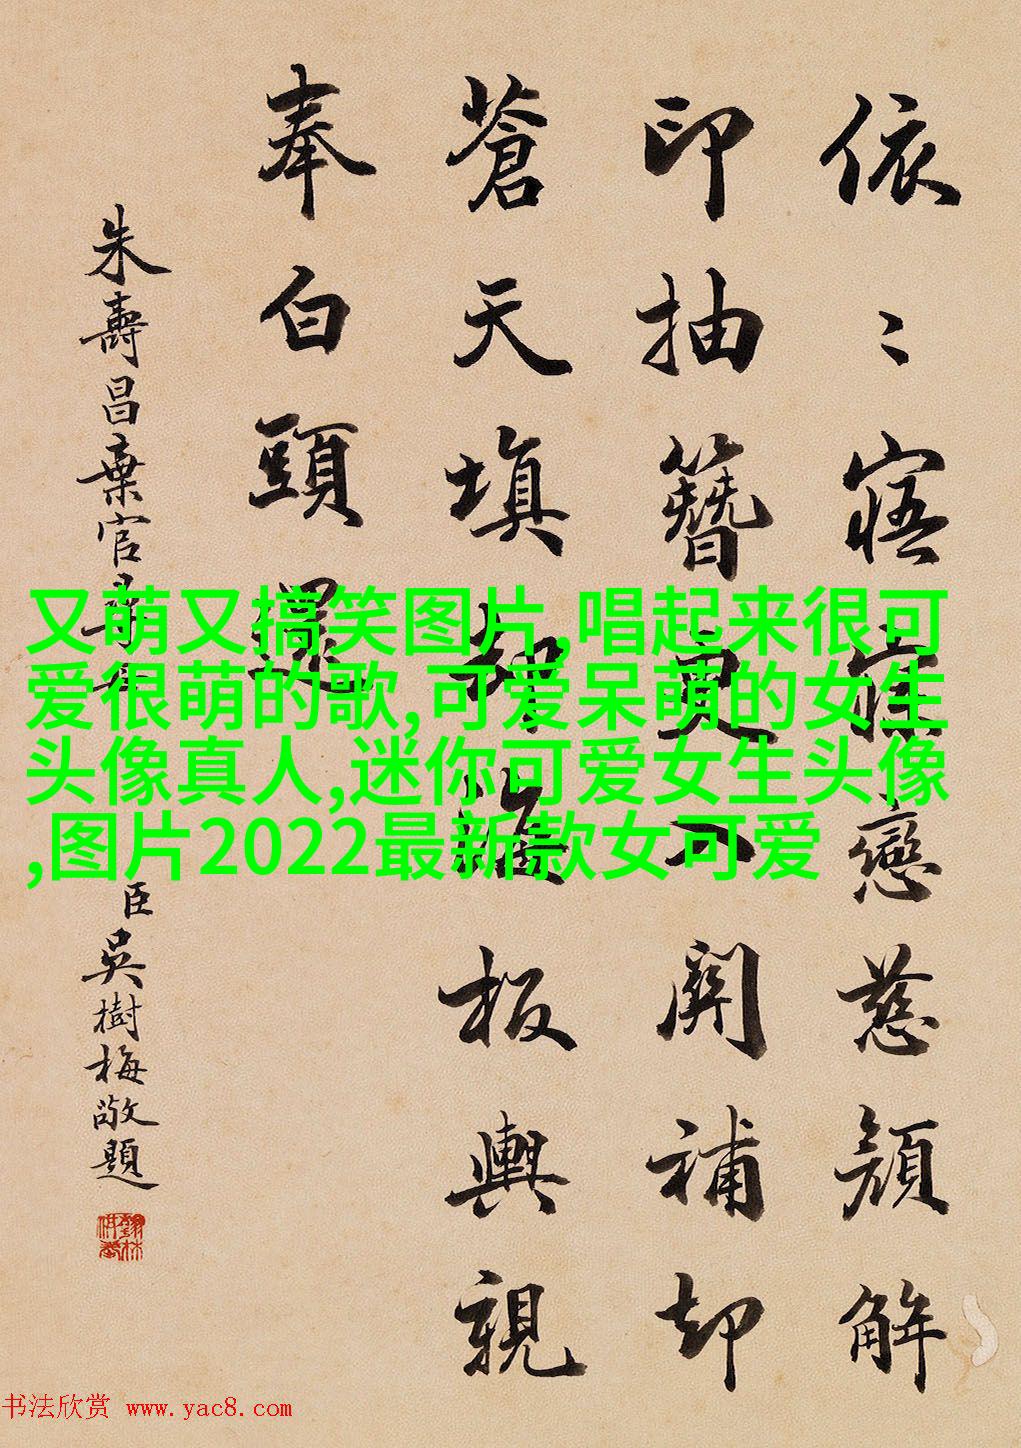 依〻寤寐戀慈顏解
印抽簪更入關補却
蒼天填却海板輿親
奉白頭還
朱壽昌棄官尋母
臣吳樹梅敬題
又萌又搞笑图片,唱起来很可
爱很萌的歌,可爱呆萌的女生
头像真人,迷你可爱女生头像
,图片2022最新款女可爱
书法欣赏 www.yac8.com